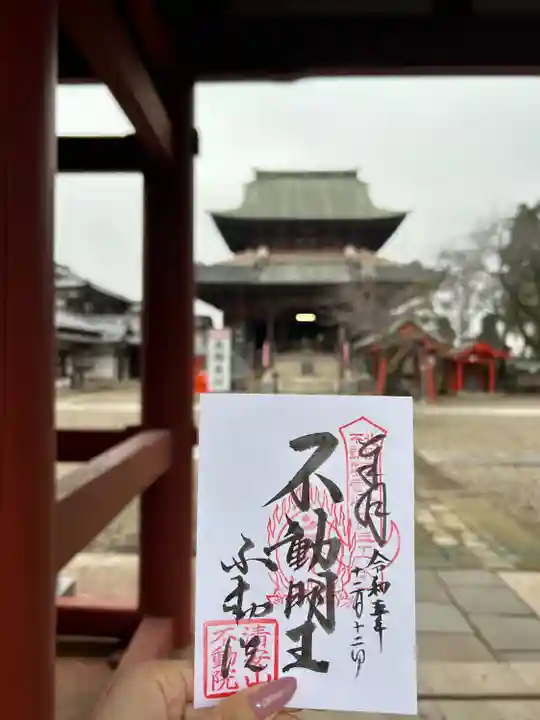 奉拝
令和五年
十二月十二日
不動明王
不動院
清安山
不動院